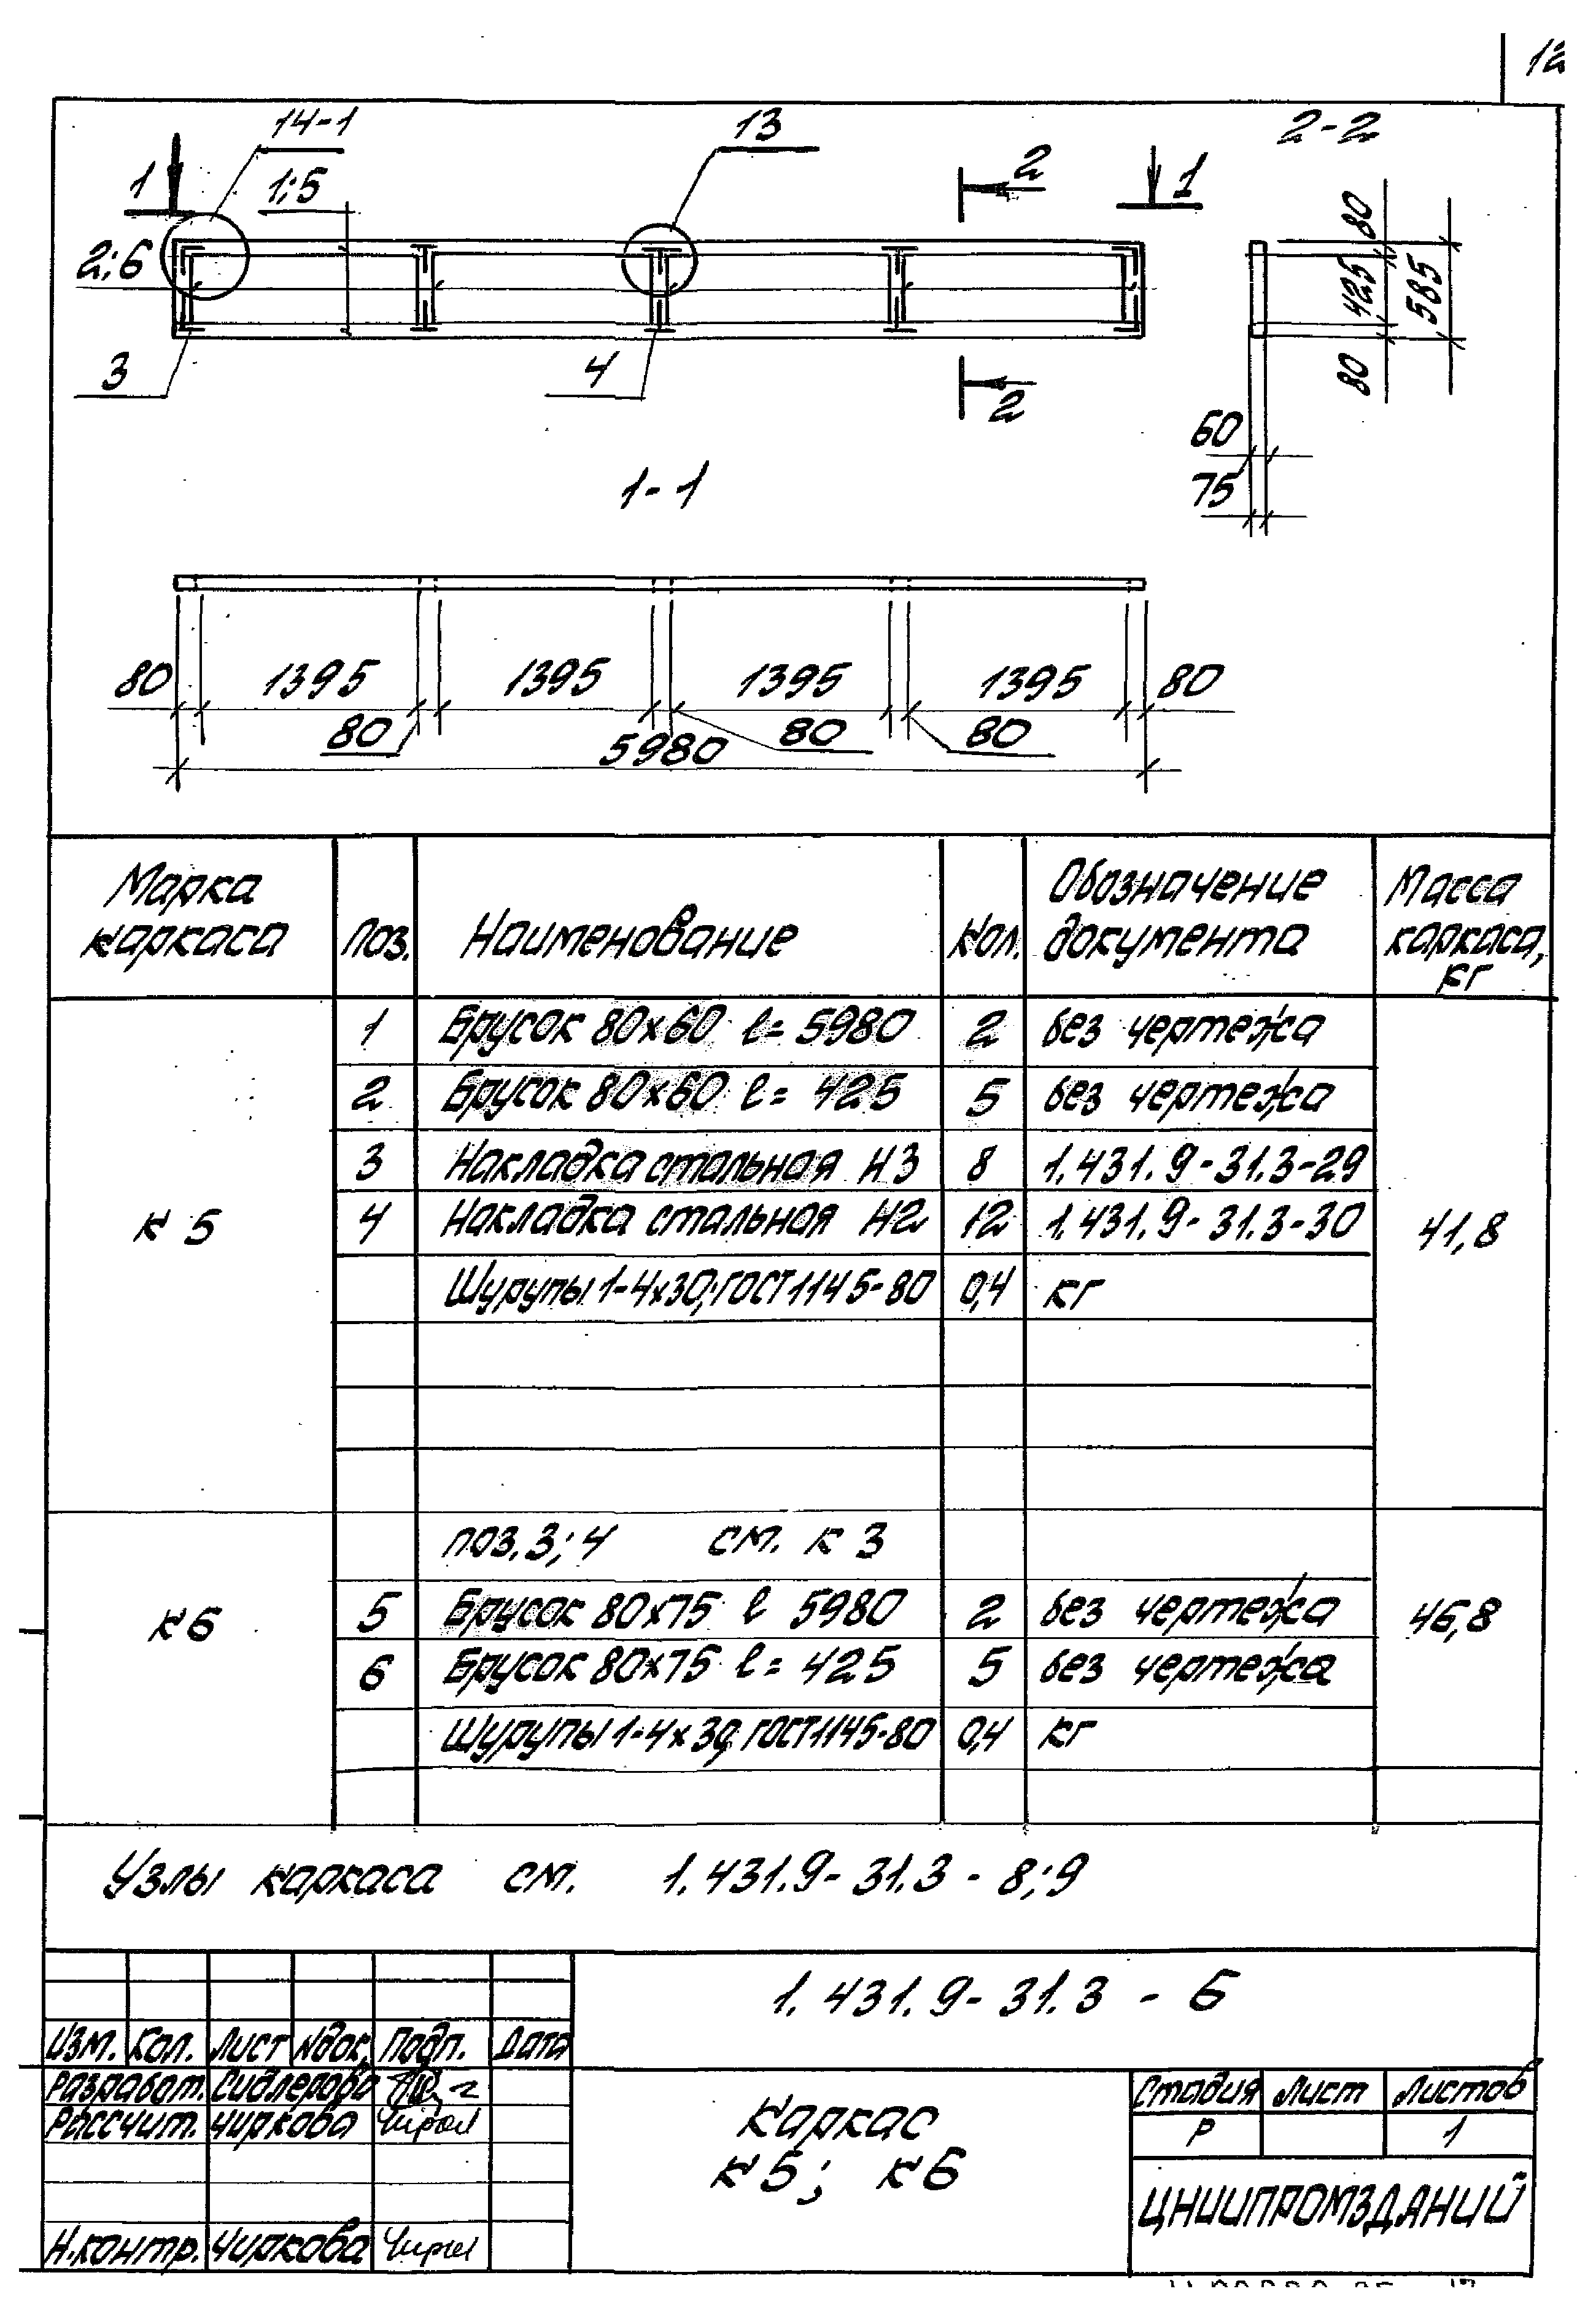 12
14-1
13
2-2
1
1;5
2
1
2;6
80
425
585
80
3
4
2
60
75
1-1
80 1395 1395 1395 1395 80
80 80 80
5980
Марка каркаса
Поз.
Наименование
Кол.
Обозначение документа
Масса каркаса, кг
К 5
41,8
1 Брусок 80×60 l= 5980 2 без чертежа
2 Брусок 80×60 l= 425 5 без чертежа
3 Накладка стальная Н3 8 1.431.9-31.3-29
4 Накладка стальная Н2 12 1.431.9-31.3-30
Шурупы 1-4×30; ГОСТ 1145-80 0,4 кг
К6
46,8
поз. 3; 4 см. К 3
5 Брусок 80×75 l 5980 2 без чертежа
6 Брусок 80×75 l= 425 5 без чертежа
Шурупы 1-4×30, ГОСТ 1145-80 0,4 кг
Узлы каркаса см. 1.431.9-31.3-8;9
1.431.9-31.3 - 6
Изм. Кол. Лист Nдок. Подп. Дата
Разработ. Сидлерова
Рассчит. Чиркова
Н.контр. Чиркова
Каркас
К5; К6
Стадия Лист Листов
Р 1
ЦНИИПРОМЗДАНИЙ